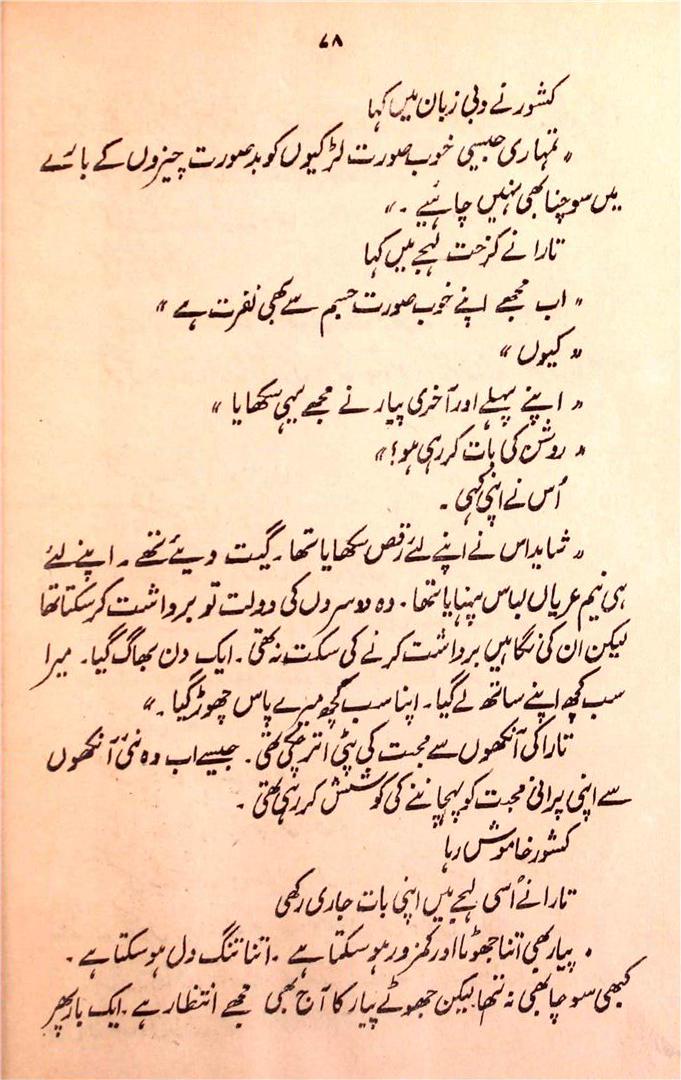 ۶۸
کشور نے دبی زبان میں کہا
" تمہاری جیسی خوب صورت لڑکیوں کو بد صورت چیزوں کے بارے
میں سوچنا بھی نہیں چاہئیے ۔"
تارا نے کرخت لہجے میں کہا
" اب مجھے اپنے خوب صورت جسم سے بھی نفرت ہے "
" کیوں "
" اپنے پہلے اور آخری پیار نے مجھے یہی سکھایا "
" روشن کی بات کر رہی ہو ؛ "
اُس نے اپنی کہی ۔
" شاید اس نے اپنے لئے رقص سکھایا تھا ۔ گیت دیئے تھے ۔ اپنے لئے
ہی نیم عریاں لباس پہنایا تھا ۔ وہ دوسروں کی دولت تو برداشت کر سکتا تھا
لیکن ان کی نگاہیں برداشت کرنے کی سکت نہ تھی ۔ ایک دن بھاگ گیا ۔ میرا
سب کچھ اپنے ساتھ لے گیا ۔ اپنا سب کچھ میرے پاس چھوڑ گیا ۔ "
تارا کی آنکھوں سے محبت کی پٹی اتر چکی تھی ۔ جیسے اب وہ نئی آنکھوں
سے اپنی پرانی محبت کو پہچاننے کی کوشش کر رہی تھی ۔
کشور خاموش رہا
تارا نے اُسی لہجے میں اپنی بات جاری رکھی
" پیار بھی اتنا جھوٹا اور کمزور ہو سکتا ہے ۔ اتنا تنگ دل ہو سکتا ہے ۔
کبھی سوچا بھی نہ تھا لیکن جھوٹے پیار کا آج بھی مجھے انتظار ہے ۔ ایک بار پھر